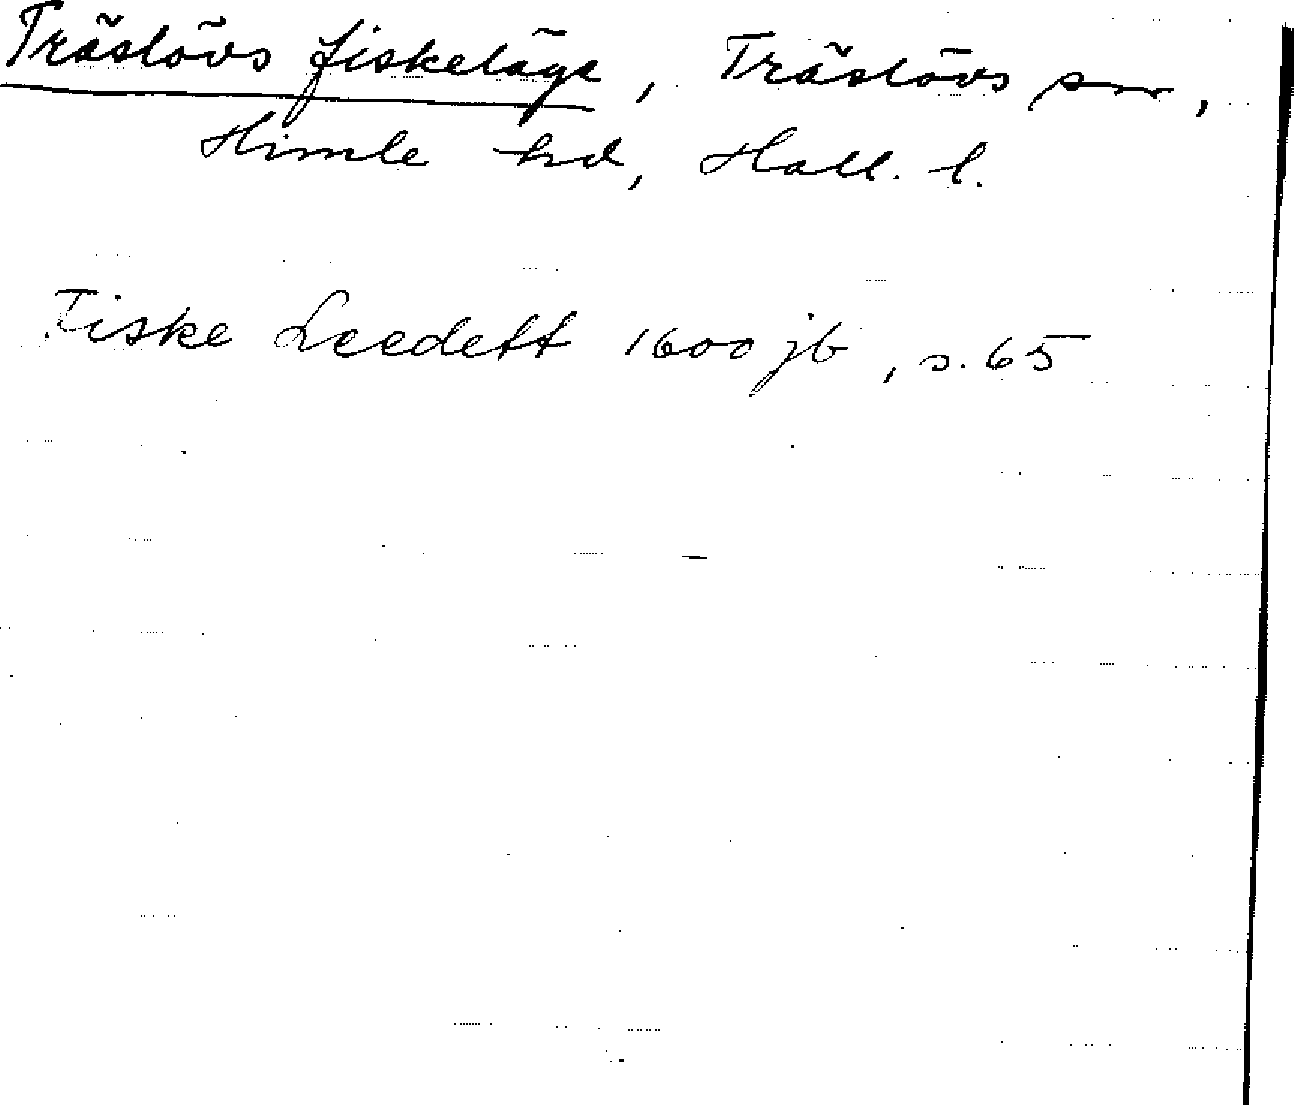 Träslövs fiskeläge, Träslövs sn,
Himle hd, Hall. l.
Fiske Leedett 1600 jb, s. 65